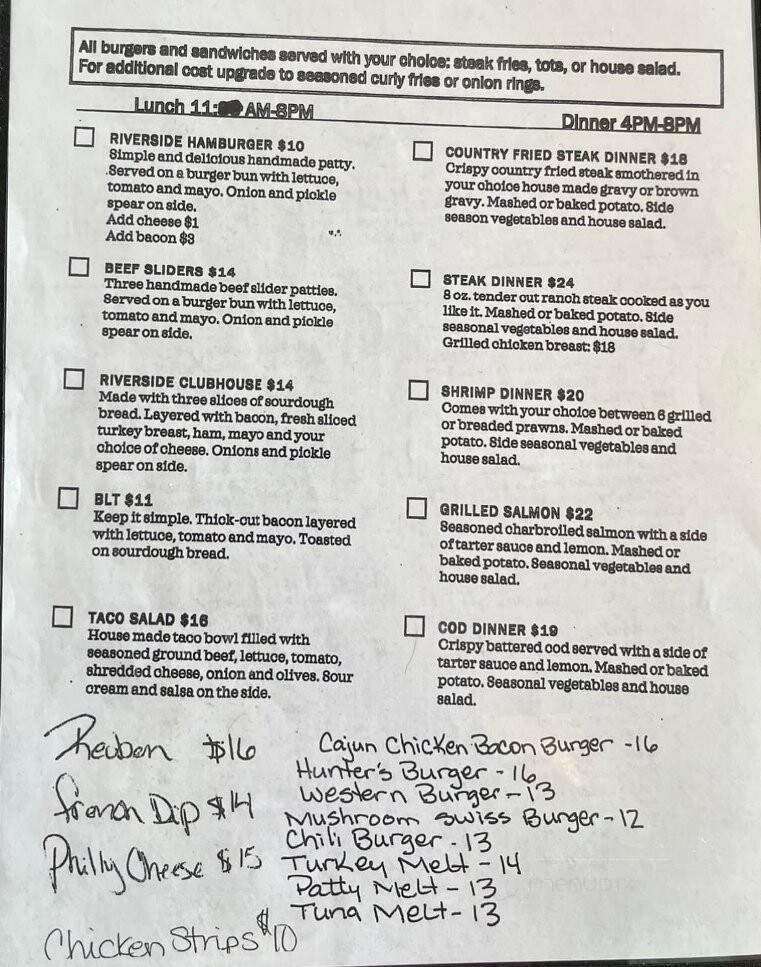 All burgers and sandwiches served with your choice: steak fries, tots, or house salad.
For additional cost upgrade to seasoned curly fries or onion rings.
Lunch 11: AM-8PM
RIVERSIDE HAMBURGER $10
Simple and delicious handmade patty.
Served on a burger bun with lettuce,
tomato and mayo. Onion and pickle
spear on side.
Add cheese $1
Add bacon $3
BEEF SLIDERS $14
Three handmade beef slider patties.
Served on a burger bun with lettuce,
tomato and mayo. Onion and pickle
spear on side.
RIVERSIDE CLUBHOUSE $14
Made with three slices of sourdough
bread. Layered with bacon, fresh sliced
turkey breast, ham, mayo and your
choice of cheese. Onions and pickle
spear on side.
BLT $11
Keep it simple. Thick-cut bacon layered
with lettuce, tomato and mayo. Toasted
on sourdough bread.
TACO SALAD $16
House made taco bowl filled with
seasoned ground beef, lettuce, tomato,
shredded cheese, onion and olives. Sour
cream and salsa on the side.
Dinner 4PM-8PM
COUNTRY FRIED STEAK DINNER $18
Crispy country fried steak smothered in
your choice house made gravy or brown
gravy. Mashed or baked potato. Side
season vegetables and house salad.
STEAK DINNER $24
8 oz. tender cut ranch steak cooked as you
like it. Mashed or baked potato. Side
seasonal vegetables and house salad.
Grilled chicken breast: $18
SHRIMP DINNER $20
Comes with your choice between 6 grilled
or breaded prawns. Mashed or baked
potato. Side seasonal vegetables and
house salad.
GRILLED SALMON $22
Seasoned charbroiled salmon with a side
of tarter sauce and lemon. Mashed or
baked potato. Seasonal vegetables and
house salad.
COD DINNER $19
Crispy battered cod served with a side of
tarter sauce and lemon. Mashed or baked
potato. Seasonal vegetables and house
salad.
Reuben $16
French Dip $14
Philly Cheese $15
Chicken Strips $10
Cajun Chicken Bacon Burger - 16
Hunter's Burger - 16
Western Burger - 13
Mushroom Swiss Burger - 12
Chili Burger - 13
Turkey Melt - 14
Patty Melt - 13
Tuna Melt - 13